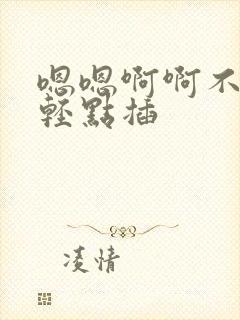 嗯嗯啊啊不
輕點插
凌情